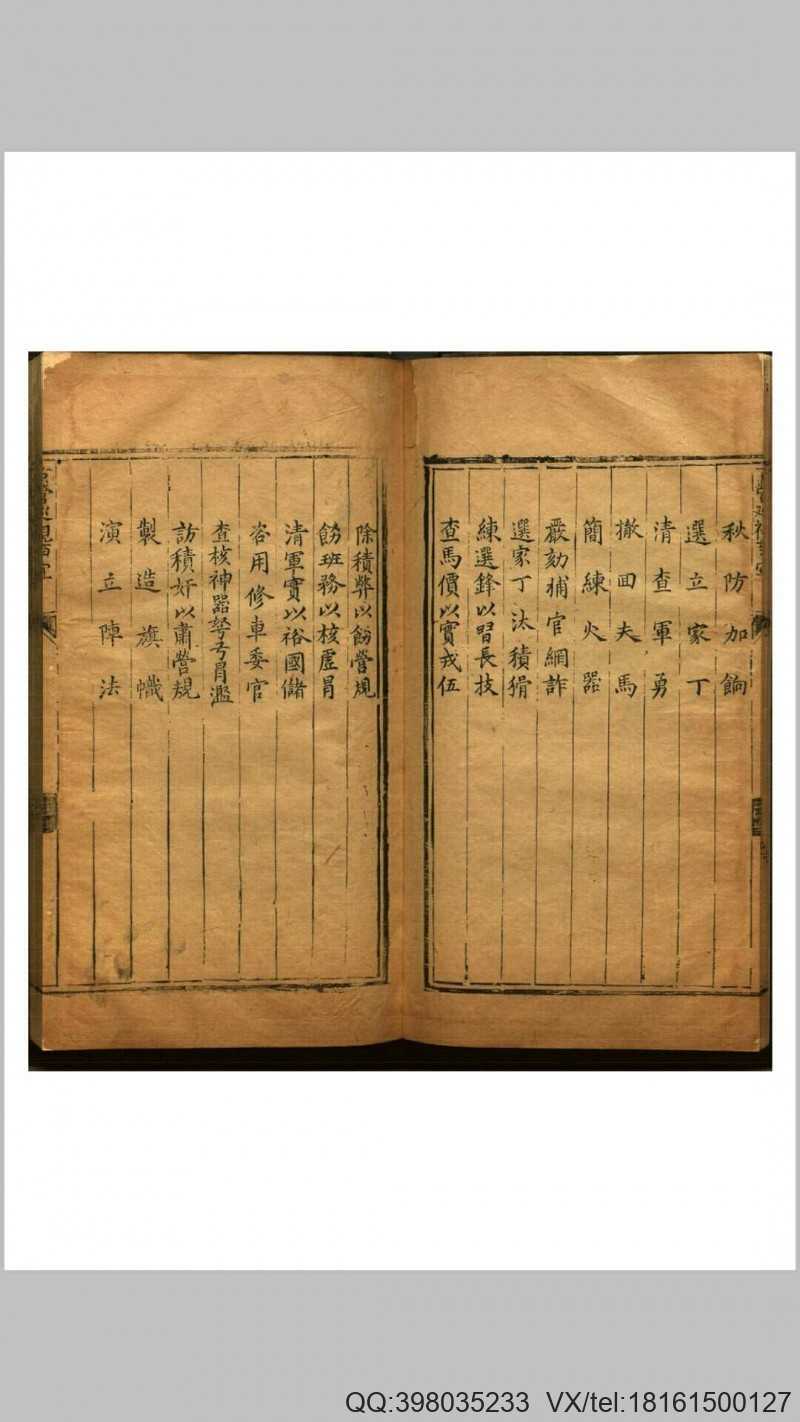 秋防加餉
選立家丁
清查軍勇
撤回夫馬
簡練火器
嚴劾捕官網詐
選家丁汰積猾
練選鋒以習長技
查馬價以實戎伍
除積弊以飭營規
飭班務以核虛冒
清軍實以裕國儲
咨用修車委官
查核神器弩弓冒濫
訪積奸以肅營規
製造旗幟
演立陣法
QQ:398035233 VX/tel:18161500127